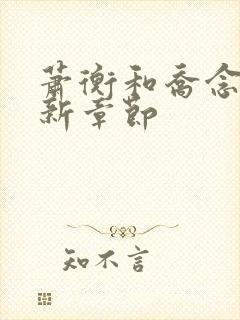 萧衡和乔念
新章节
知不言